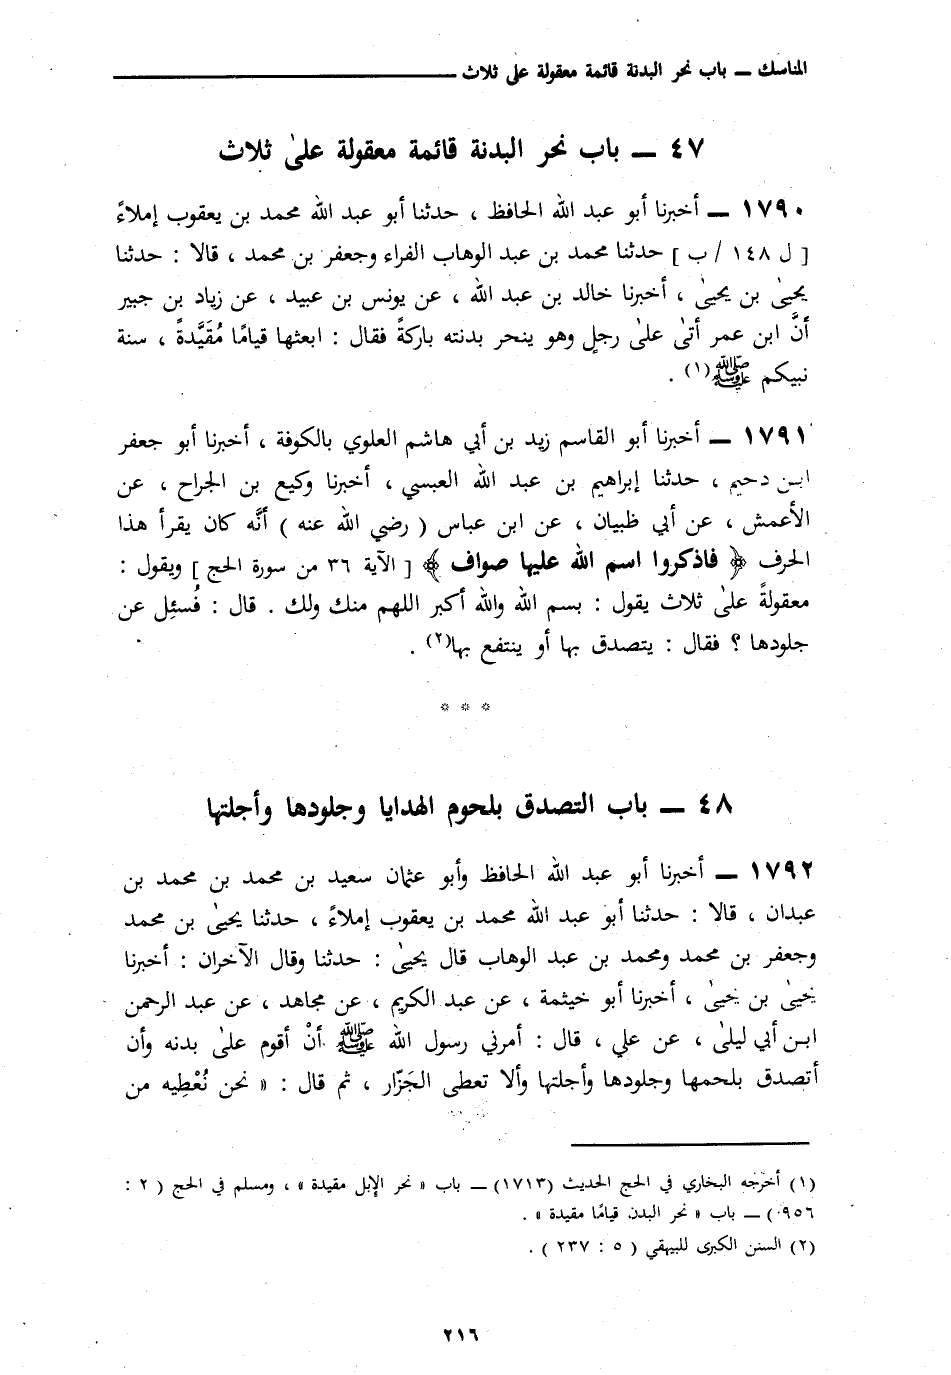 المناسك — باب نحر البدنة قائمة معقولة على ثلاث
٤٧ — باب نحر البدنة قائمة معقولة علىٰ ثلاث
١٧٩٠ — أخبرنا أبو عبد الله الحافظ ، حدثنا أبو عبد الله محمد بن يعقوب إملاءً
[ ل ١٤٨ / ب ] حدثنا محمد بن عبد الوهاب الفراء وجعفر بن محمد ، قالا : حدثنا
يحيىٰ بن يحيىٰ ، أخبرنا خالد بن عبد الله ، عن يونس بن عبيد ، عن زياد بن جبير
أنَّ ابن عمر أتىٰ علىٰ رجلٍ وهو ينحر بدنته باركةً فقال : ابعثها قيامًا مُقَيَّدةً ، سنة
نبيكم ﷺ(١) .
١٧٩١ — أخبرنا أبو القاسم زيد بن أبي هاشم العلوي بالكوفة ، أخبرنا أبو جعفر
ابن دحيم ، حدثنا إبراهيم بن عبد الله العبسي ، أخبرنا وكيع بن الجراح ، عن
الأعمش ، عن أبي ظبيان ، عن ابن عباس ( رضي الله عنه ) أنَّه كان يقرأ هذا
الحرف ﴿ فاذكروا اسم الله عليها صواف ﴾ [ الآية ٣٦ من سورة الحج ] ويقول :
معقولةً علىٰ ثلاث يقول : بسم الله والله أكبر اللهم منك ولك . قال : فُسئِل عن
جلودها ؟ فقال : يتصدق بها أو ينتفع بها(٢) .
* * *
٤٨ — باب التصدق بلحوم الهدايا وجلودها وأجلتها
١٧٩٢ — أخبرنا أبو عبد الله الحافظ وأبو عثمان سعيد بن محمد بن محمد بن
عبدان ، قالا : حدثنا أبو عبد الله محمد بن يعقوب إملاءً ، حدثنا يحيىٰ بن محمد
وجعفر بن محمد ومحمد بن عبد الوهاب قال يحيىٰ : حدثنا وقال الآخران : أخبرنا
يحيىٰ بن يحيىٰ ، أخبرنا أبو خيثمة ، عن عبد الكريم ، عن مجاهد ، عن عبد الرحمن
ابن أبي ليلىٰ ، عن علي ، قال : أمرني رسول الله ﷺ أنْ أقوم علىٰ بدنه وأن
أتصدق بلحمها وجلودها وأجلتها وألا تعطى الجَزّار ، ثم قال : « نحن نُعْطِيه من
(١) أخرجه البخاري في الحج الحديث (١٧١٣) — باب « نحر الإبل مقيدة » ، ومسلم في الحج ( ٢ :
٩٥٦) — باب « نحر البدن قيامًا مقيدة » .
(٢) السنن الكبرى للبيهقي ( ٥ : ٢٣٧ ) .
٢١٦